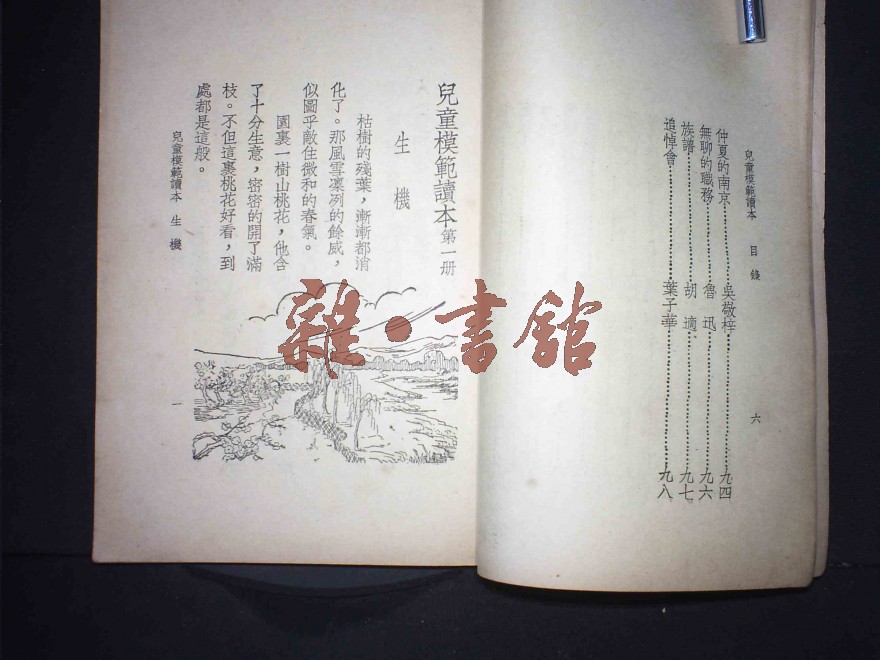 兒童模範讀本 目錄
仲夏的南京⋯⋯吳敬梓⋯⋯九四
無聊的職務⋯⋯魯迅⋯⋯九六
族譜⋯⋯胡適⋯⋯九七
追悼會⋯⋯葉子華⋯⋯九八
六
兒童模範讀本 第一册
生機
枯樹的殘葉，漸漸都消
化了。那風雪凛冽的餘威，
似圖乎敵住微和的春氣。
園裏一樹山桃花，他含
了十分生意，密密的開了滿
枝。不但這裏桃花好看，到
處都是這般。
兒童模範讀本 生機
一
雜·書館